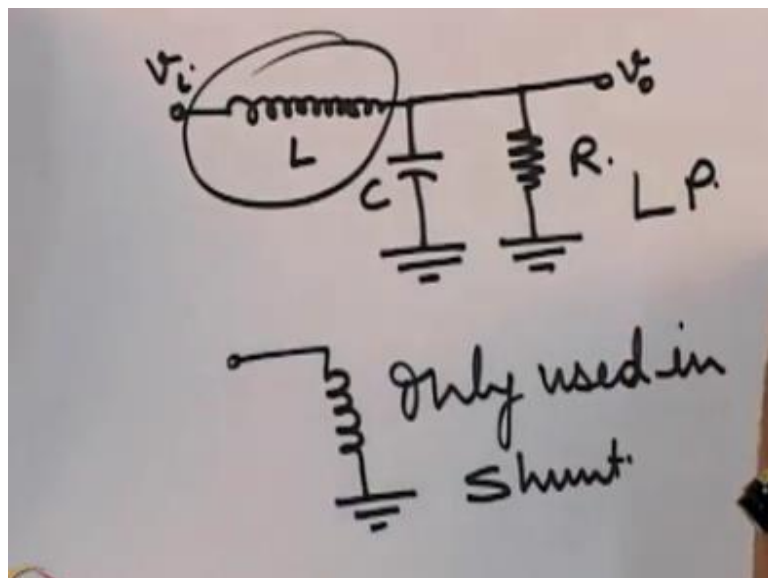 Vi
Vo
L
C
R.
L P.
Only used in
Shunt.